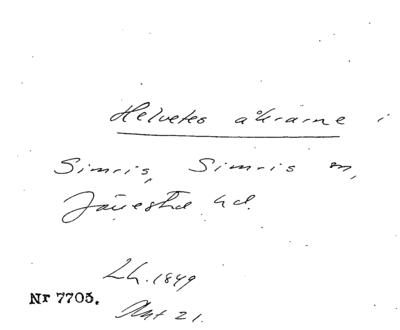 Helvetes åkrarne i
Simris, Simris sn,
Järrestad hd.
Lh. 1849
Nr 7705. Akt 21.